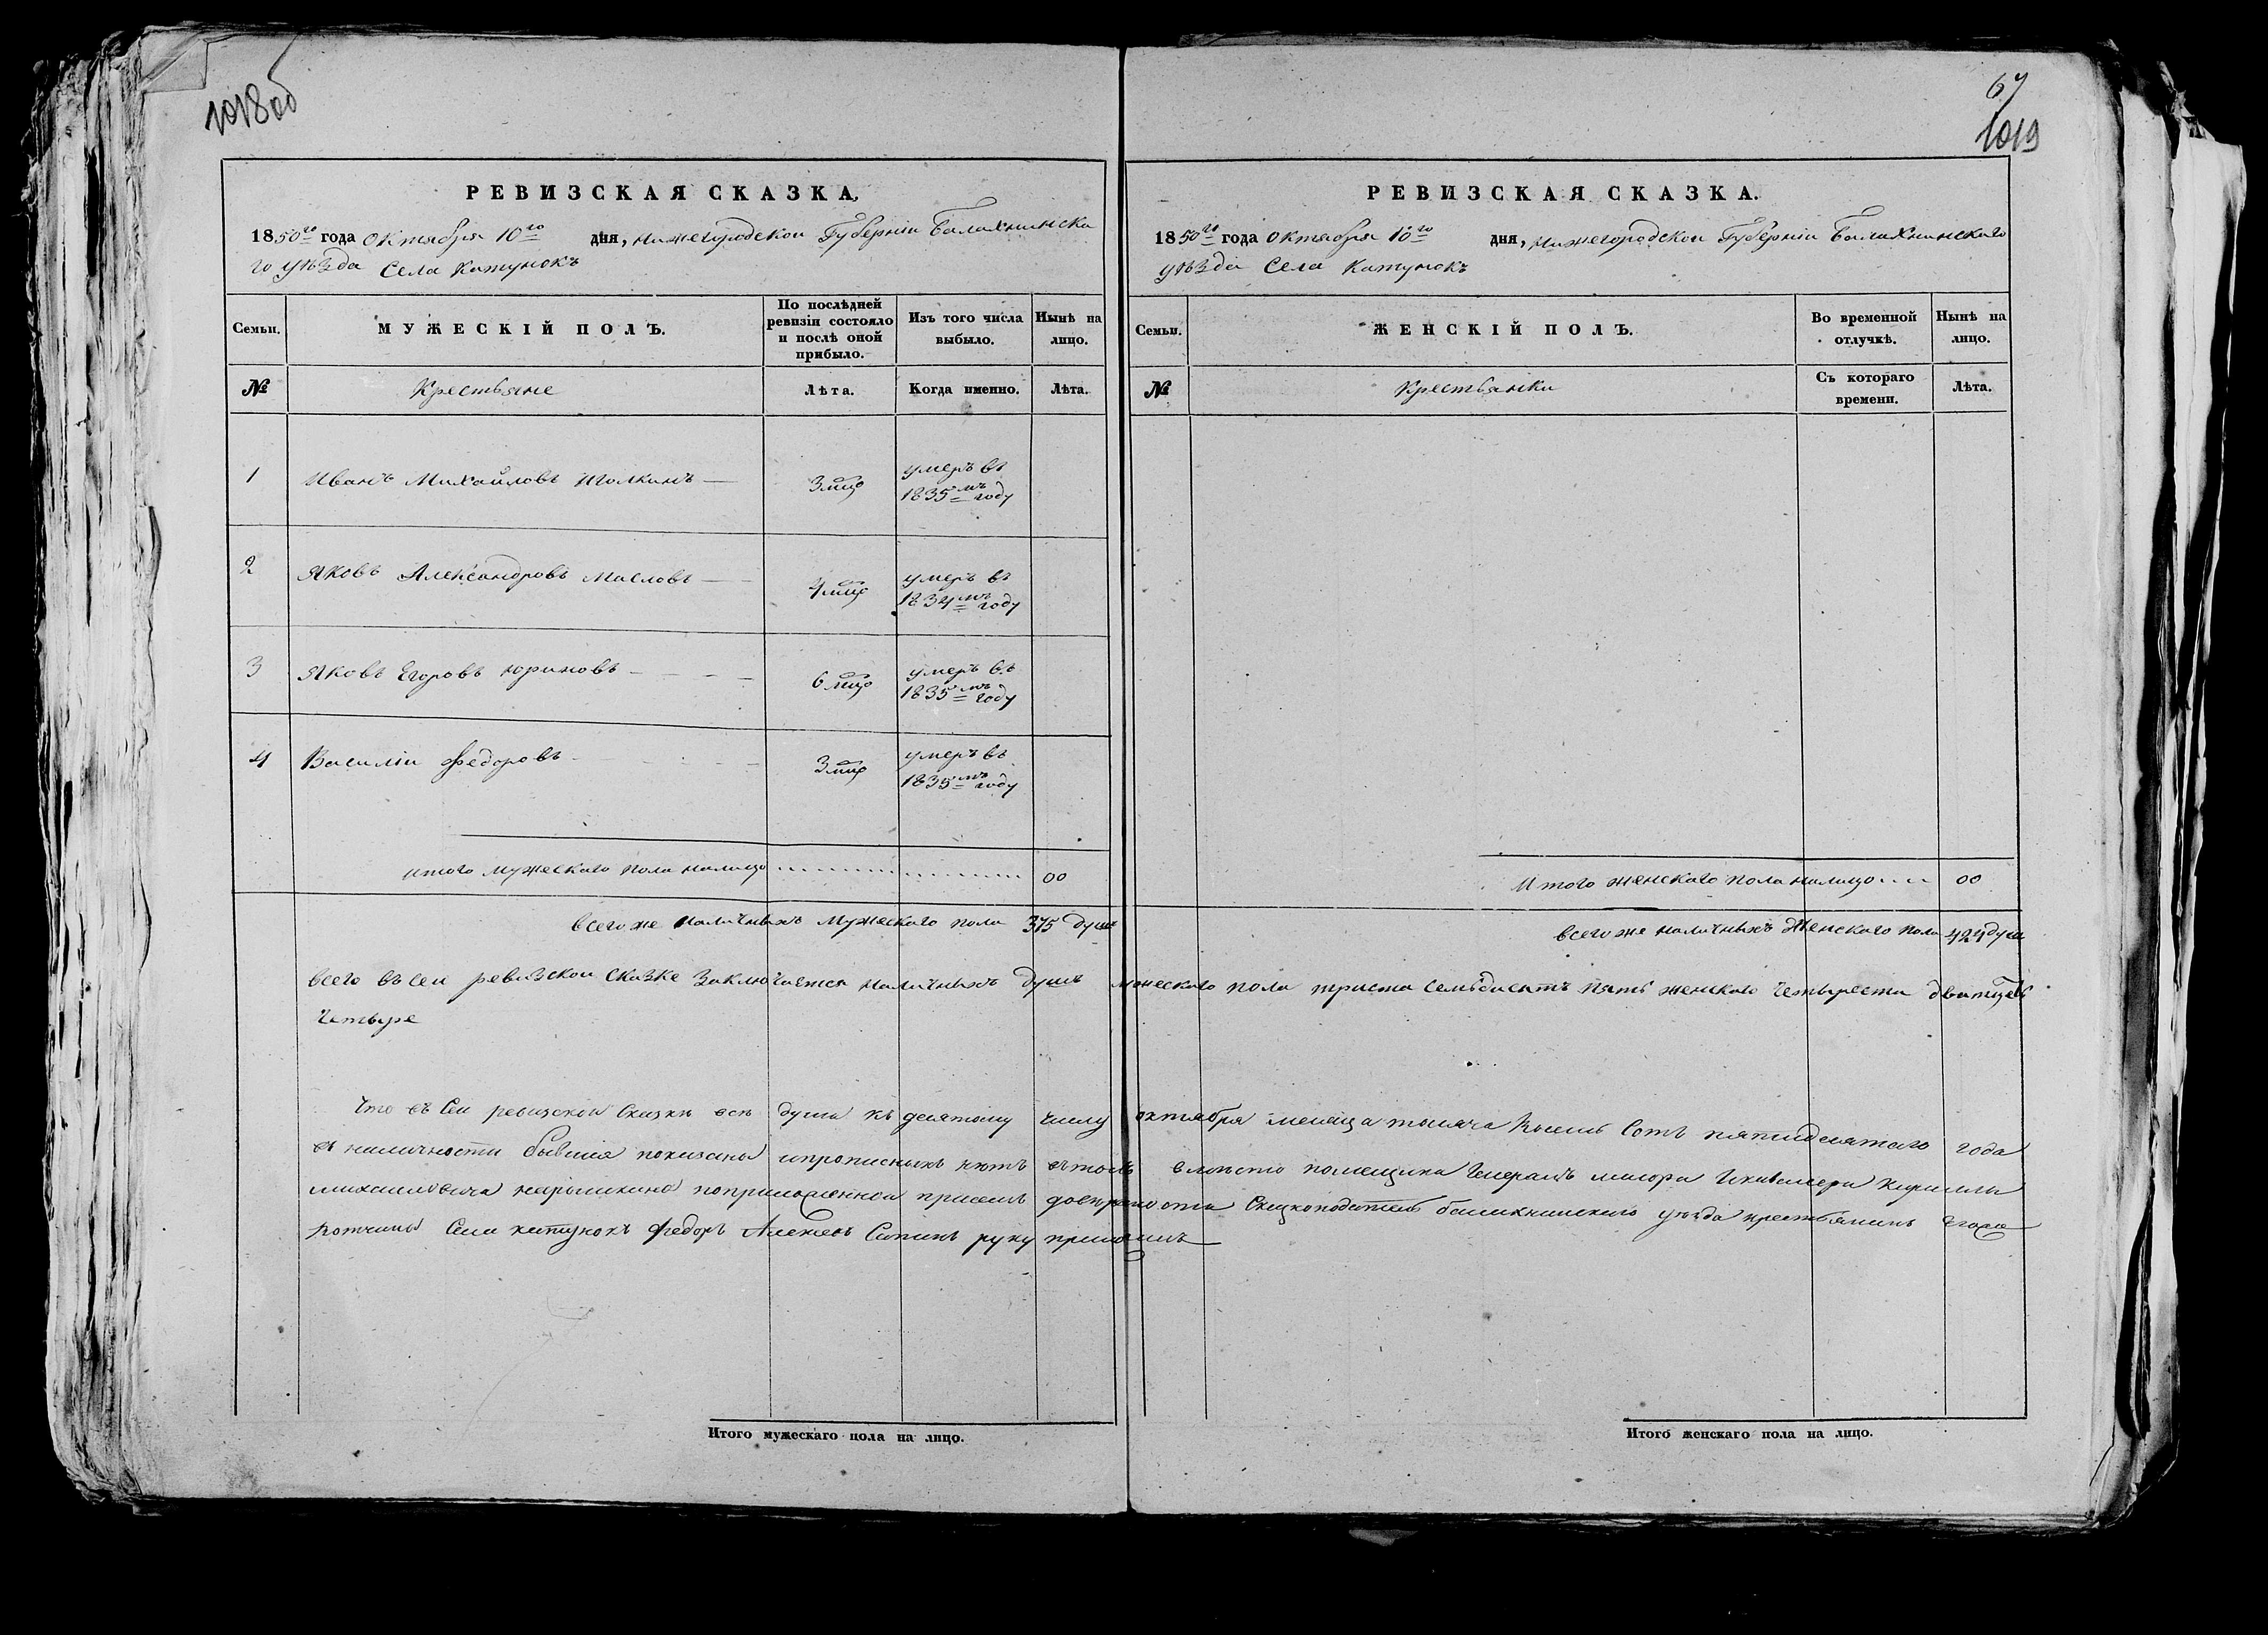 1018об
РЕВИЗСКАЯ СКАЗКА,
1850го года Октября 10го дня, Нижегородской Губерніи Балахнинска
го уѣзда Села Катунокъ
Семьи.
МУЖЕСКІЙ ПОЛЪ.
По послѣдней
ревизіи состояло
и послѣ оной
прибыло.
Изъ того числа
выбыло.
Нынѣ на
лицо.
№
Крестьяне
Лѣта.
Когда именно.
Лѣта.
1 Иванъ Михайловъ Иголкинъ — 3 умеръ въ
1835мъ году
2 Яковъ Александровъ Масловъ — 4 умеръ въ
1834мъ году
3 Яковъ Егоровъ Юриновъ — 6 умеръ въ
1835мъ году
4 Василіи Федоровъ — 3 умеръ въ
1835мъ году
итого мужескаго пола налицо 00
всего же наличныхъ мужескаго пола 375 душъ
67
1019
РЕВИЗСКАЯ СКАЗКА.
1850го года Октября 10го дня, Нижегородской Губерніи Балахнинскаго
уѣзда Села Катунокъ
Семьи.
ЖЕНСКІЙ ПОЛЪ.
Во временной
отлучкѣ.
Нынѣ на
лицо.
№
Крестьянки
Съ котораго
времени.
Лѣта.
Итого женскаго пола налицо 00
всего же наличныхъ Женскаго пола 424 душ
всего въ сеи ревизскои сказке заключается наличныхъ душъ мужескаго пола триста семьдисятъ пять женскаго четыреста дватцать
четыре
Что въ Сеи ревизскои Сказки всѣ души къ десятому числу октября месяца тысяча восемь Сотъ пятидесятаго года
в наличности бывшия показаны ипрописныхъ нетъ вътомъ вместо помещика Генералъ маиора Икавалера Кирилы
михаиловича нарышкина поприложеннои присемъ доверености Скаскоподатель балахнинскаго уезда крестьянинъ Егоже
вотчины Села катунокъ Федоръ Алексеевъ Сапинъ руку приложилъ
Итого мужескаго пола на лицо.
Итого женскаго пола на лицо.